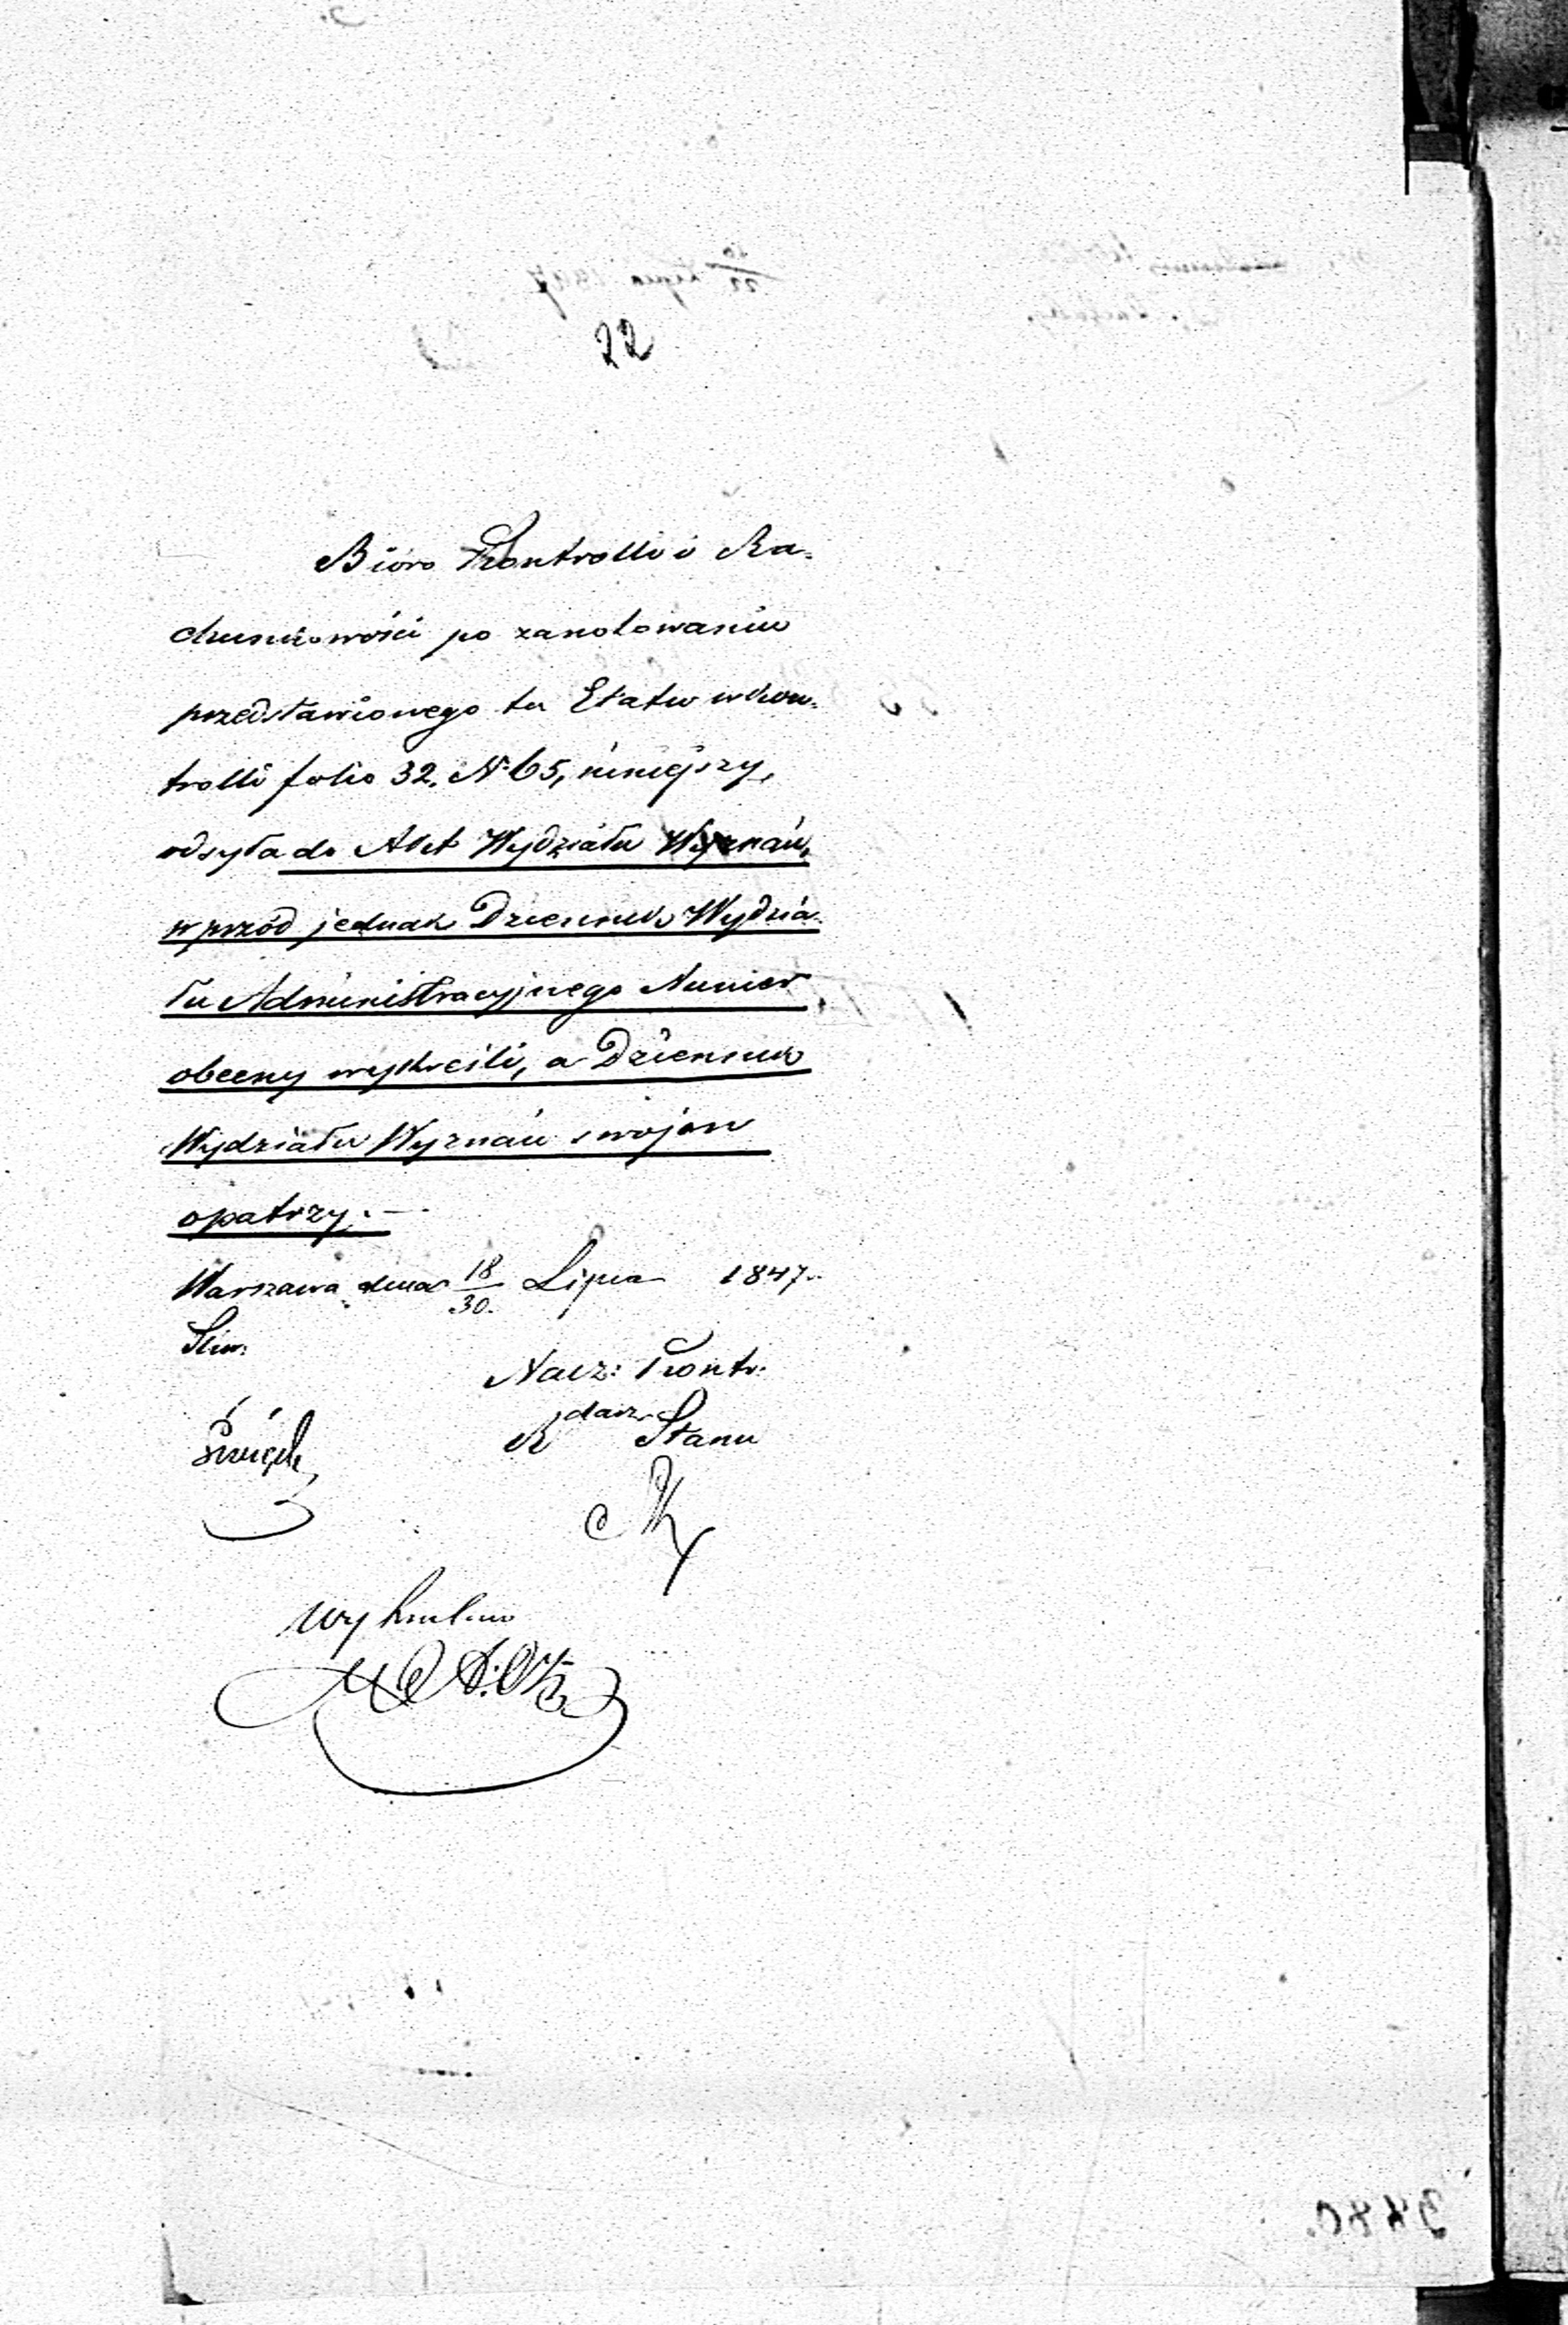 22
Bióro Kontrolli i Ra-
chunkowości po zanotowaniu
przedstawionego tu Etatu w kon-
trolli folio 32. N. 65, niniejszy,
odsyła do Akt Wydziału Wyznań,
w przód jednak Dziennik Wydzia-
łu Administracyjnego Numer
obecny wykreśli, a Dziennik
Wydziału Wyznań swojem
opatrzy. —
Warszawa dnia 18/30. Lipca 1847.
Nacz: Kontr:
R dca Stanu